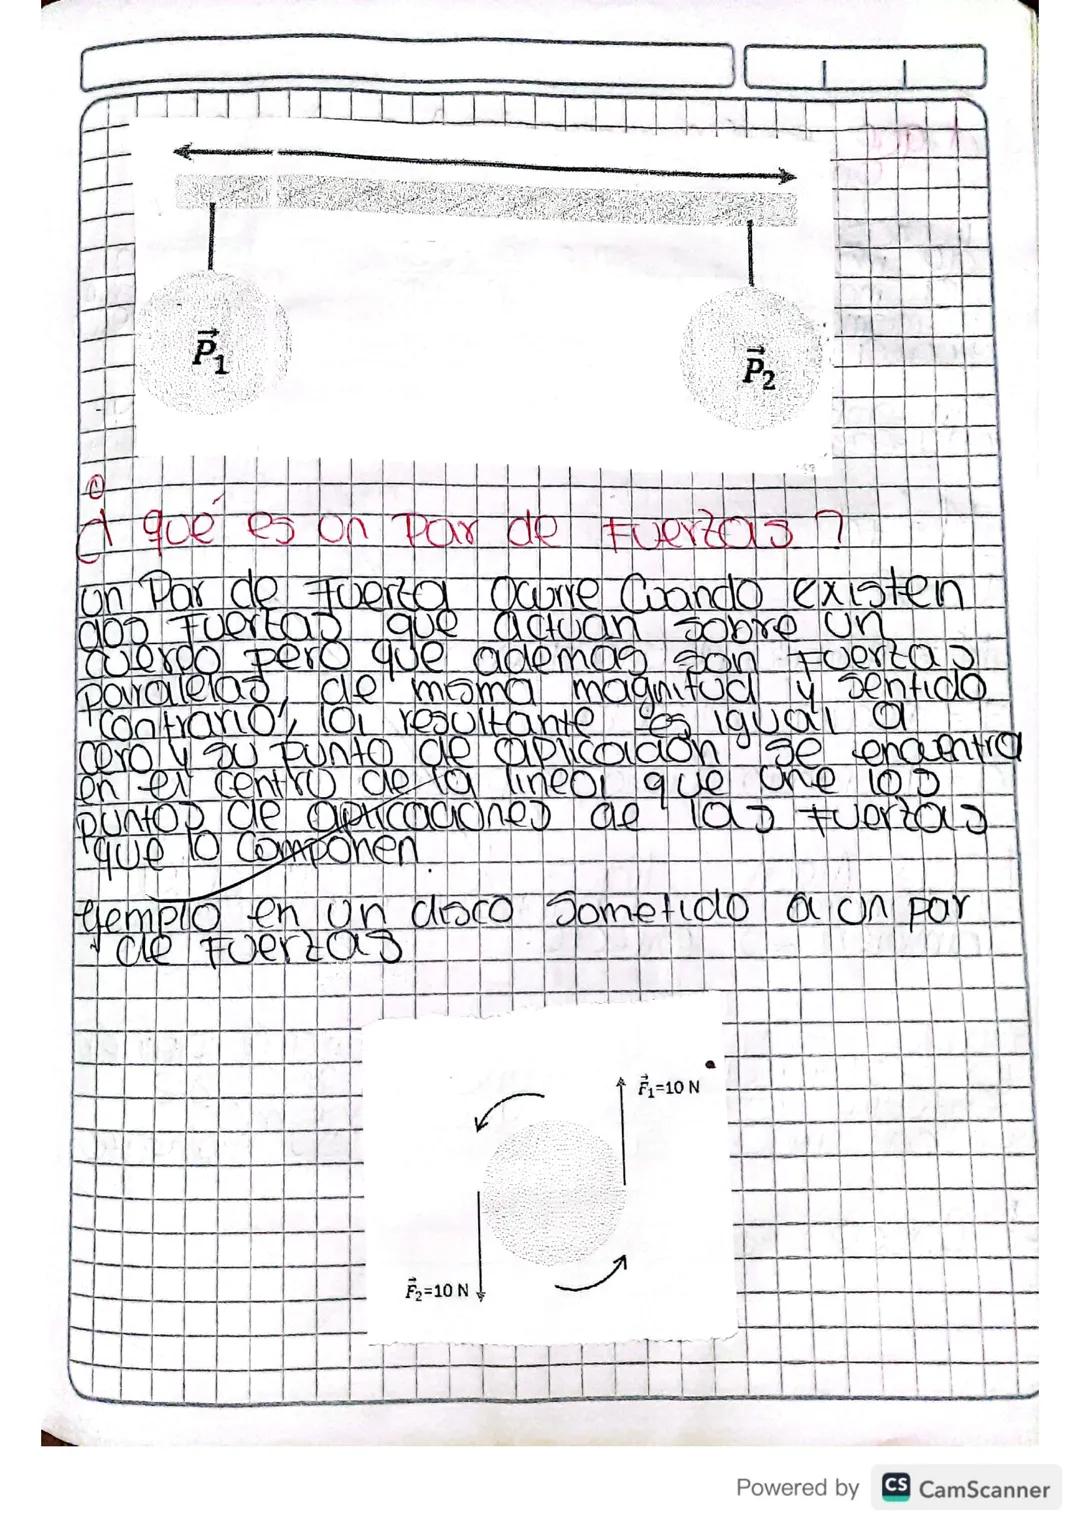 P₁
P₂
¿ qué es un Par de Fuerzas ?
un Par de Fuerza Ocurre Cuando existen
dos Fuerzas que actuan sobre un
cuerpo pero que ademas son Fuerzas
paralelas, de misma magnitud y sentido
contrario, la resultante es igual a
cero y su punto de aplicación se encuentra
en el centro de la linea que une los
puntos de aplicaciones de las Fuerzas
que lo componen.
ejemplo en un disco Sometido a un par
de Fuerzas
F₁=10 N
F₂=10 N
Powered by CS CamScanner